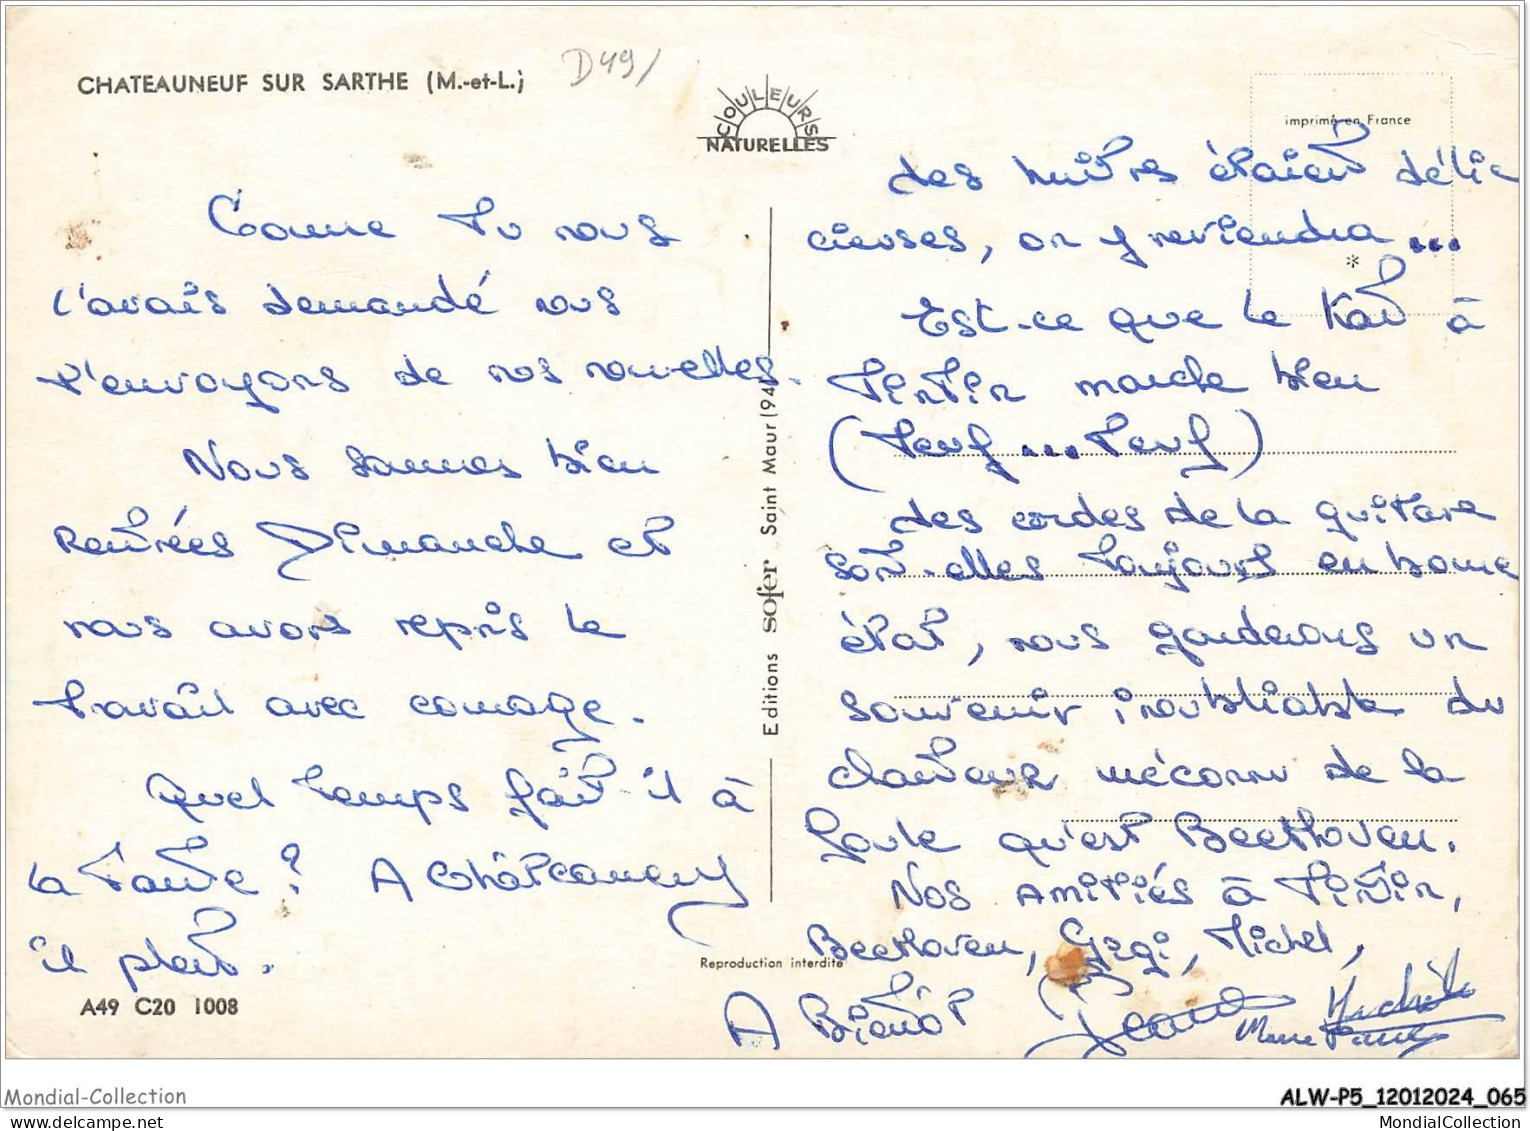 CHATEAUNEUF SUR SARTHE (M.-et-L.)
D49/
COULEURS
NATURELLES
imprimé en France
Comme tu nous
l'avais demandé nous
t'envoyons de nos nouvelles.
Nous sommes bien
Rentrées Dimanche et
nous avons repris le
travail avec courage.
Quel temps fait-il à
la ? A
il pleut.
A49 C20 1008
Editions sofer Saint Maur (94)
Reproduction interdite
des huitres étaient délic
cieuses, on y reviendra ...
*
Est-ce que le Kat à
Tintin marche bien
(Teuf ... Teuf)
des cordes de la guitare
sont-elles toujours en bonne
état, nous garderons un
souvenir inoubliable du
chanteur méconnu de la
foule qu'est Beethoven.
Nos Amitiés à Tintin,
Beethoven, Gigi, Michel,
A Bientôt
Michèle
Marie Paule
Mondial-Collection
ALW-P5_12012024_065
MondialCollection